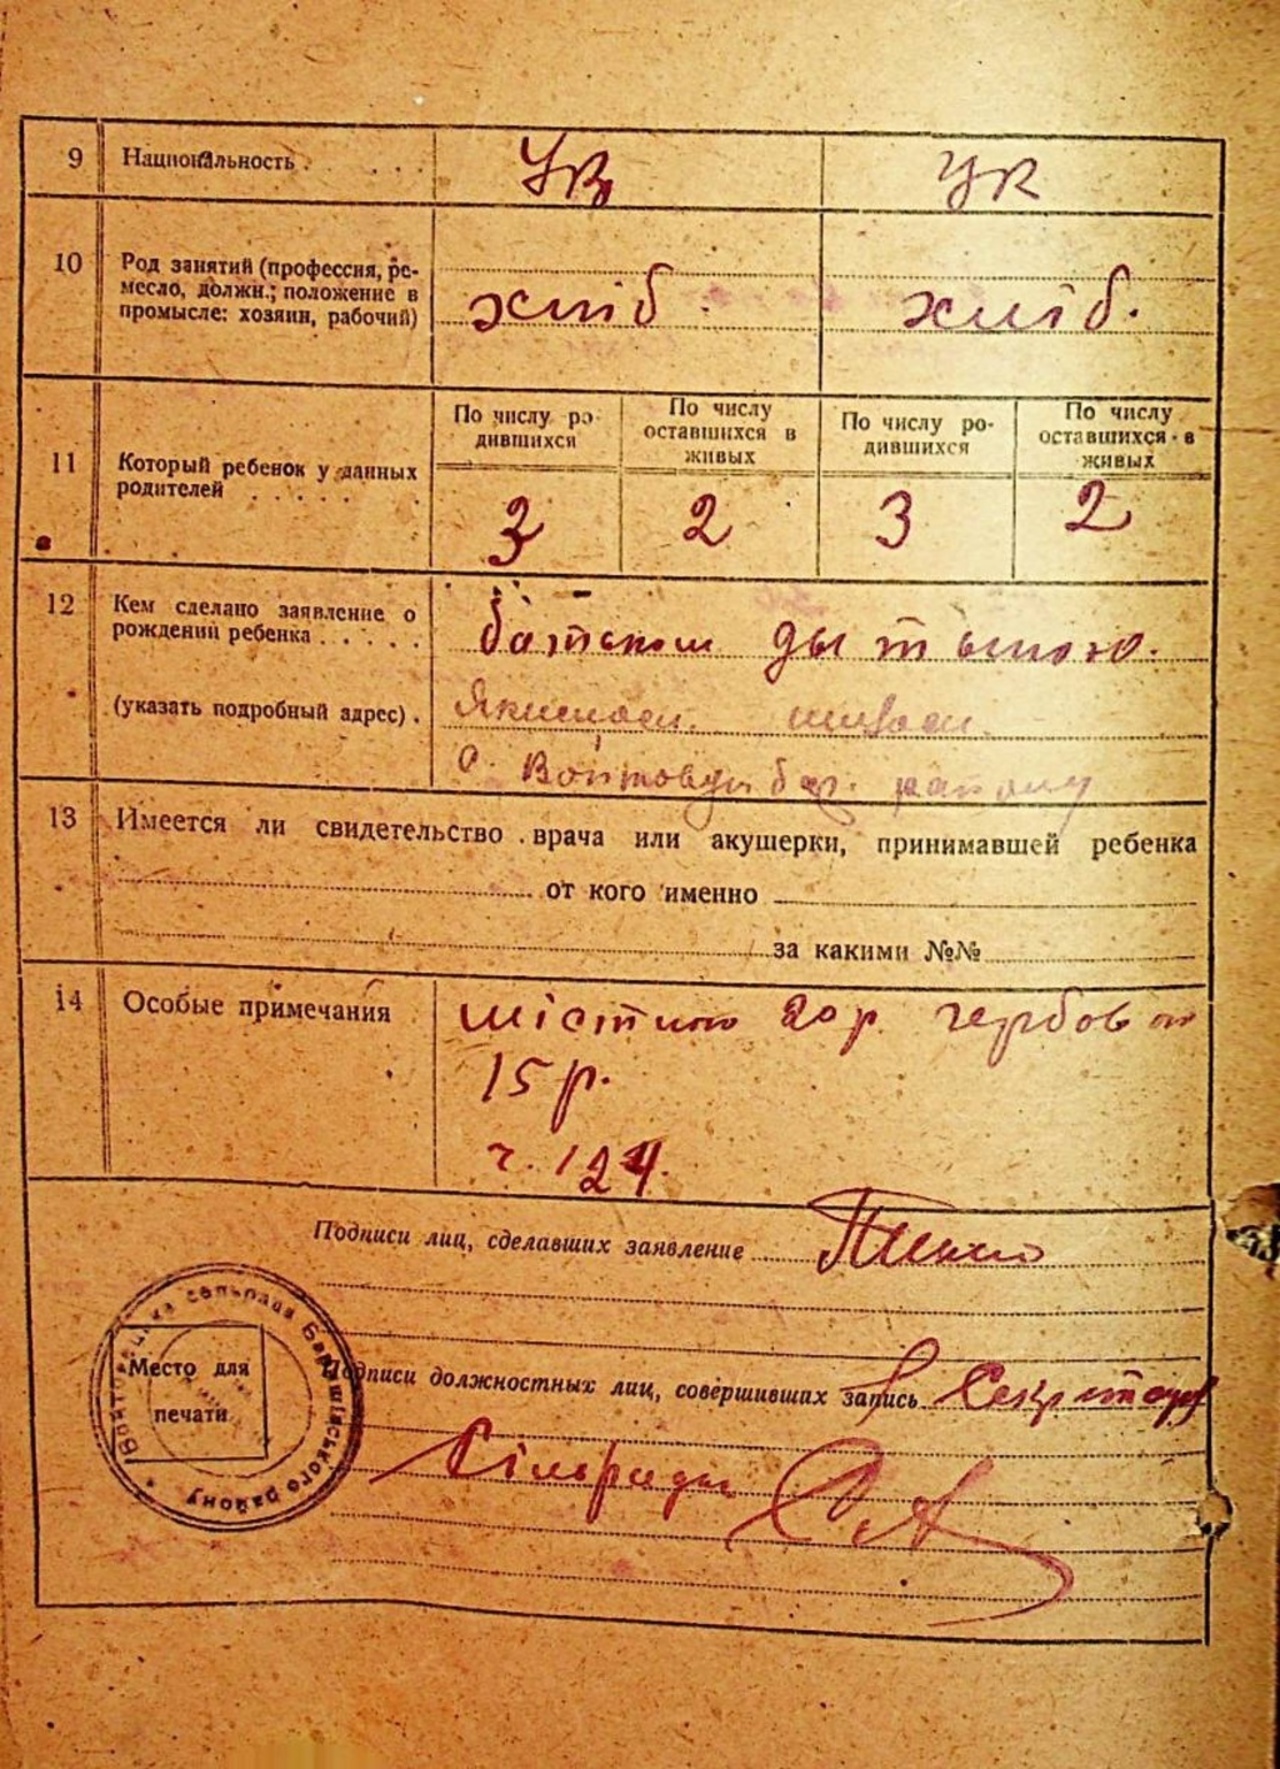 9 Национальность . . . . Ук Ук
10 Род занятий (профессия, ре-
месло, должн.; положение в
промысле: хозяин, рабочий)
хліб хліб.
11 Который ребенок у данных
родителей . . . . .
По числу ро-
дившихся
По числу
оставшихся в
живых
По числу ро-
дившихся
По числу
оставшихся в
живых
3 2 3 2
12 Кем сделано заявление о
рождении ребенка . . . . .
батьком дытыною.
(указать подробный адрес) .
с. Войтовци бар. району
13 Имеется ли свидетельство врача или акушерки, принимавшей ребенка
от кого именно
за какими №№
14 Особые примечания
містного 20 р. гербового
15 р.
ч. 124.
Подписи лиц, сделавших заявление
Место для
печати
Подписи должностных лиц, совершивших запись Секретар
Сільради
сельрада Баришівського району